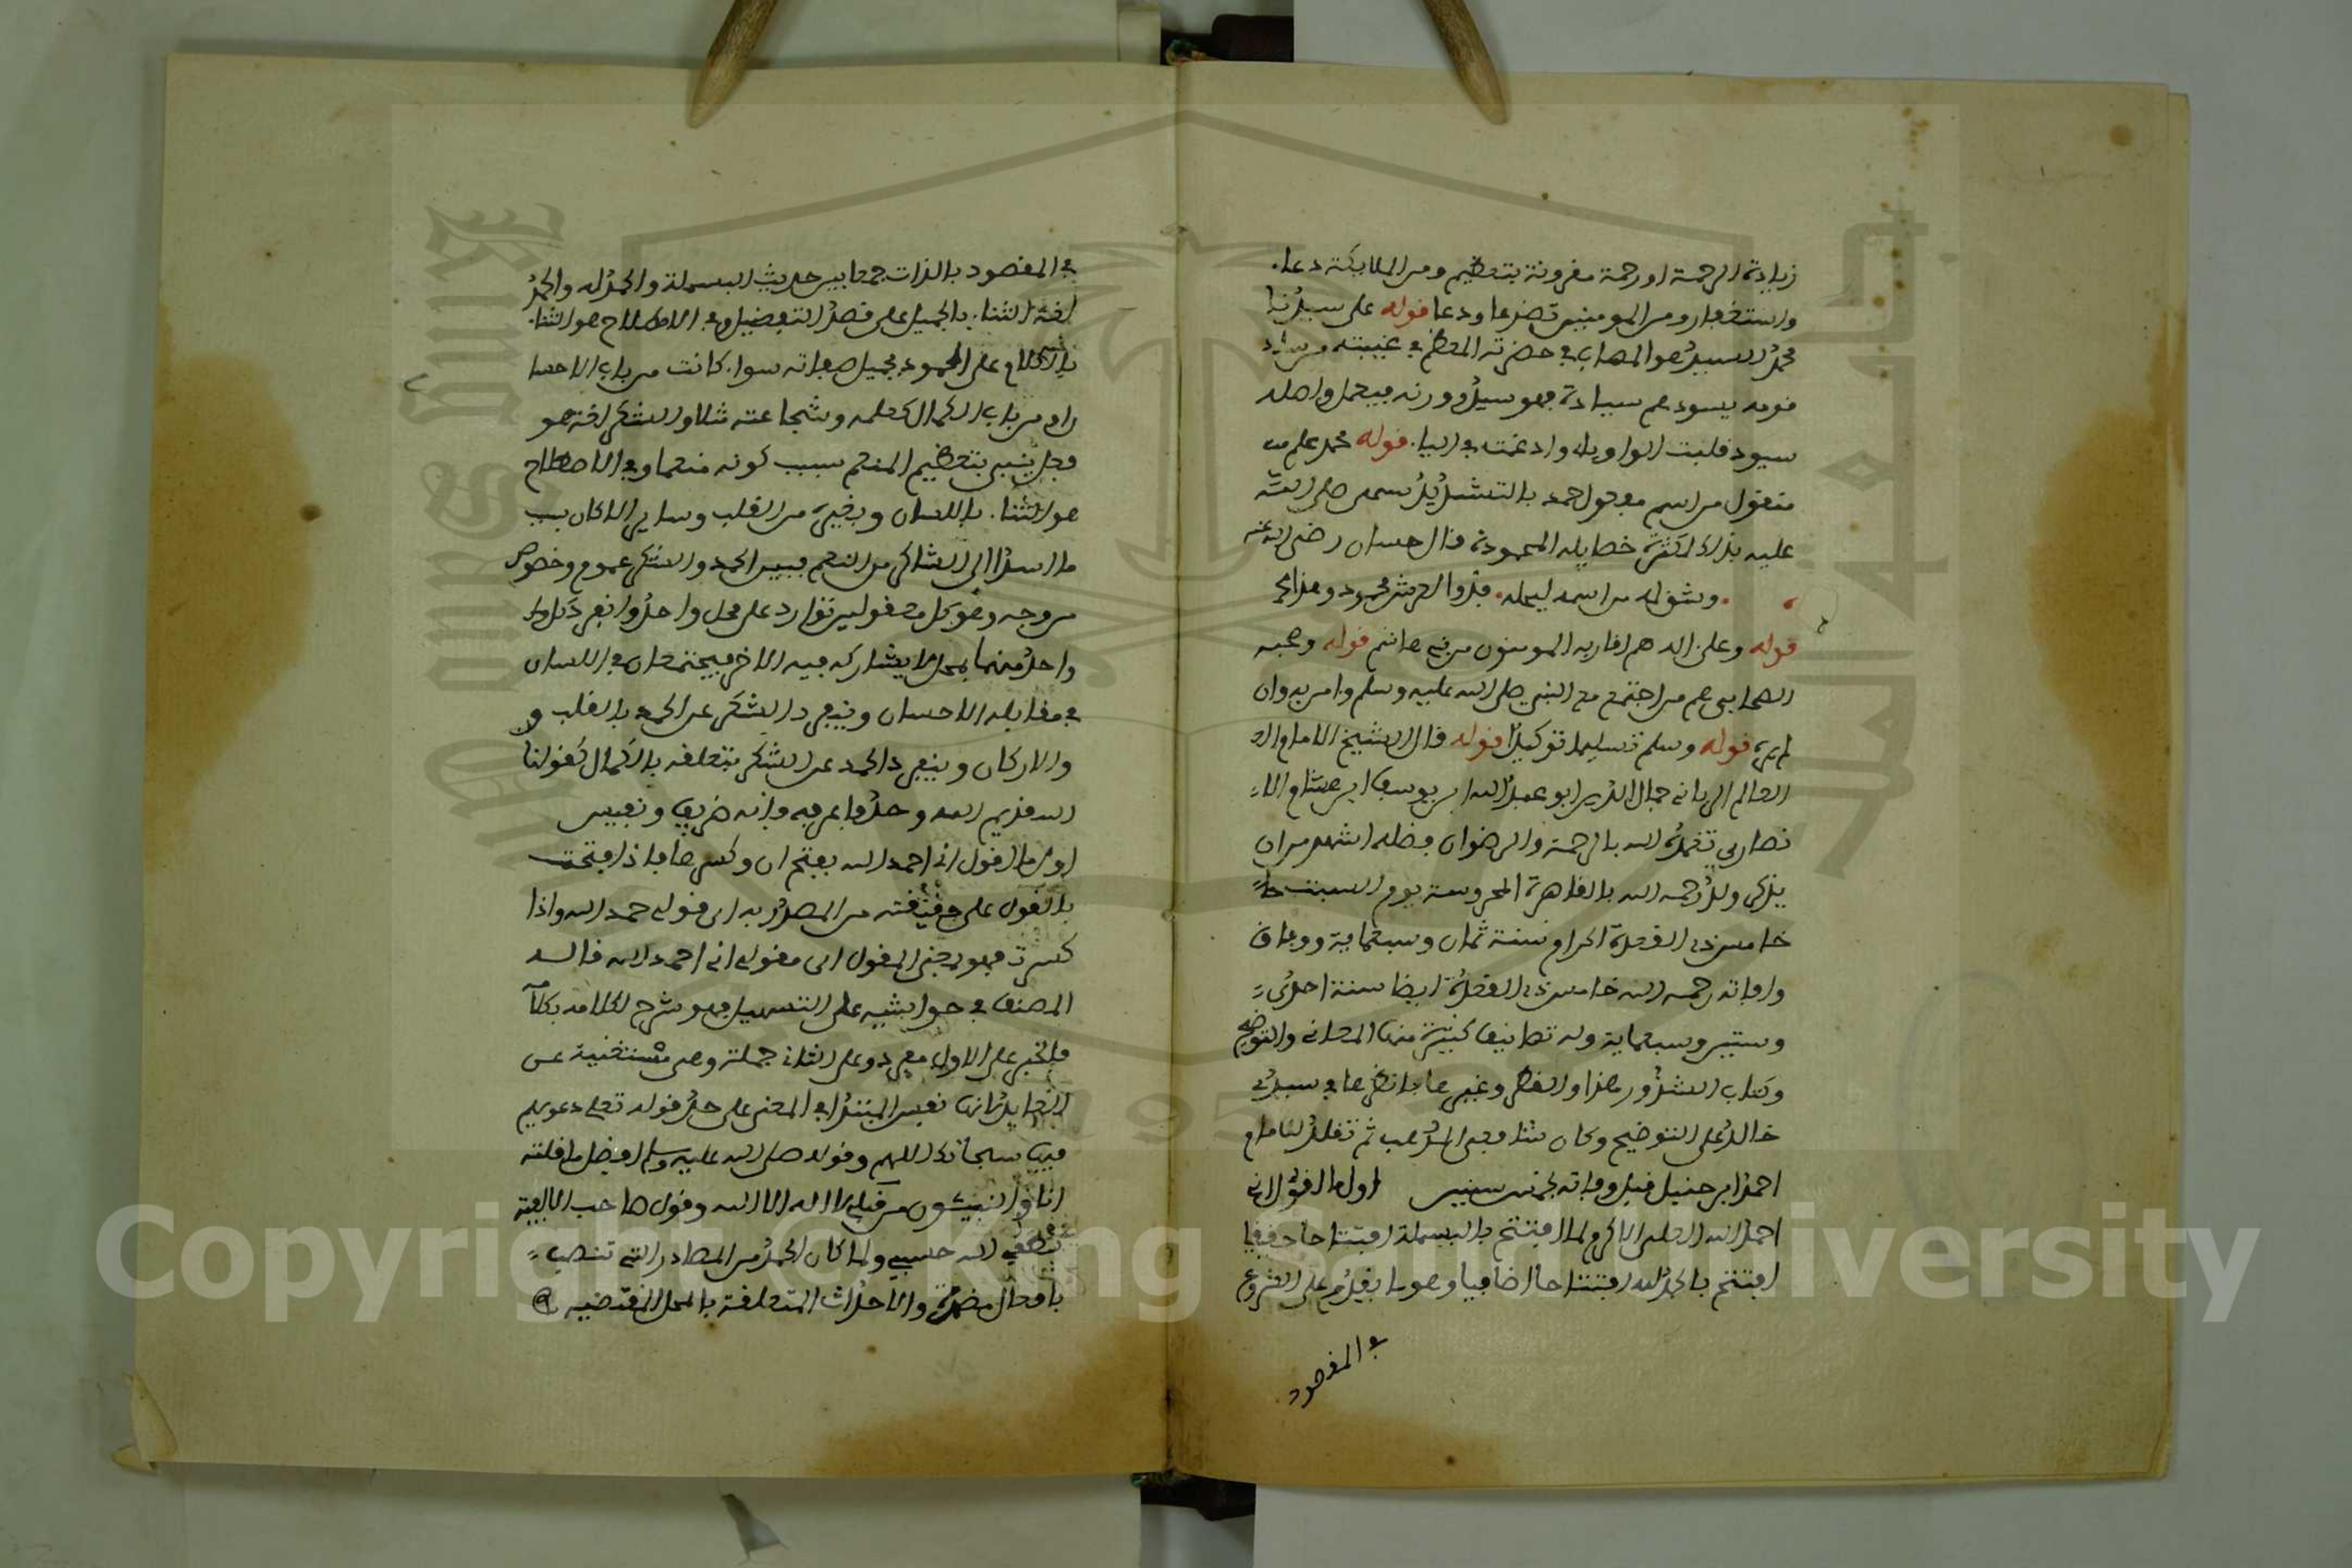 زيادة الرحمة او رحمة مقرونة بتعظيم ومن الملايكة دعا.
واستغفار ومن المومنين تضرعا ودعا قوله على سيدنا
محمد السيد هو المهاب في حضرته المعظم في غيبته من ساد
قومه يسودهم سيادة فهو سيد ووزنه فيعل واصله
سيود قلبت الواو يا وادغمت في اليا. قوله محمد علم
منقول من اسم مفعول حمد بالتشديد سمى صلى الله
عليه بذلك لكثرة خصايله المحمودة قال حسان رضى الله عنه
وشق له من اسمه ليجله. فذوا العرش محمود وهذا محمد
قوله وعلى اله هم اقاربه المومنون من بني هاشم قوله وصحبه
الصحابي هم من اجتمع مع النبي صلى الله عليه وسلم وامن به وان
لم يره قوله وسلم تسليما توكيدا قوله قال الشيخ الامام
العالم الرباني جمال الدين ابو عبد الله ابن يوسف ابن هشام الا
نصاري تغمده الله بالرحمة والرضوان فضله اشهر من ان
يذكر ولد رحمه الله بالقاهرة المحروسة يوم السبت
خامس ذي القعدة الحرام سنة ثمان وسبعماية ووفاق
وافاته رحمه الله خامس ذي القعدة ايضا سنة احدى
وستين وسبعماية وله تصانيف كثيرة منها المغاني والتوضيح
وكتاب الشذور هذا والقطر وغيرها فانظرها في سيدي
خالد على التوضيح وكان شافعي المذهب ثم تقلد للامام
احمد ابن حنبل قبل وفاته بخمس سنين اول ما اقول اني
احمد الله العلي الاكرم لما افتتح بالبسملة افتتاحا حقيقيا
افتتح بالحمد لله افتتاحا اضافيا وهو ما يقدم على الشروع
في المقصود
في المقصود بالذات جمعا بين حديث البسملة والحمد له والحمد
لغة الثنا. بالجميل على قصد التبجيل وفي الاصطلاح هو الثنا.
بالكلام على المحمود بجميل صفاته سوا. كانت من باب الاحسا
ن ام من باب الكمال كعلمه وشجاعته مثلا والشكر لغة هو
فعل ينبي بتعظيم المنعم بسبب كونه منعما وفي الاصطلاح
هو الثنا. باللسان وبغيره من القلب وساير الاركان بسبب
ما اسدا الى الشاكر من النعم فبين الحمد والشكر عموم وخصوص
من وجه وهو كل معقولين توارد على محل واحد وانفرد كل
واحد منهما بمحل لا يشاركه فيه الاخر فيجتمعان في اللسان
في مقابلة الاحسان وينفرد الشكر عن الحمد بالقلب و
والاركان وينفرد الحمد عن الشكر بتعلقه بالكمال كقولنا
الله قديم الله واحد فاعرفه فانه ظريف ونفيس
اول ما اقول اني احمد الله بفتح ان وكسرها فاذا فتحت
بالقول على حقيقته من المصدرية اى قولي حمد الله واذا
كسرت فهو بمعنى المقول اى مقولي اني احمد الله قاله
المصنف في حواشيه على التسهيل فهو شرح لكلامه بكلامه
فالخبر على الاول مفرد وعلى الثاني جملة وهي مستغنية عن
العايد لانها نفس المبتدا في المعنى على حد قوله تعلى دعويهم
فيها سبحانك اللهم وقوله صلى الله عليه وسلم افضل ما قلته
انا والنبيئون من قبلي لا اله الا الله وقول صاحب الالفية
نطقي الله حسبي ولما كان الحمد من المصادر التي تنصب
بافعال مضمرة والاحداث المتعلقة بالمحل المقتضيه